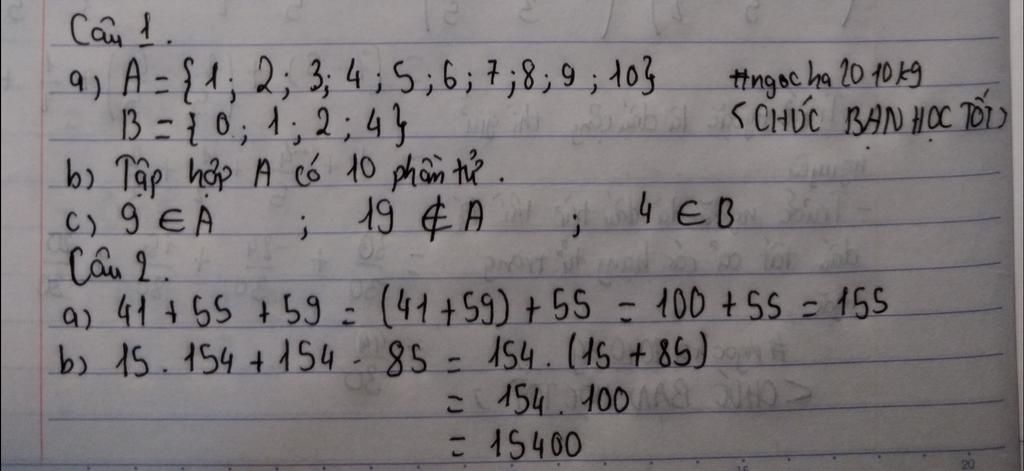 Câu 1.
a) A = {1; 2; 3; 4; 5; 6; 7; 8; 9; 10} #ngocha2010kg
B = {0; 1; 2; 4} <CHÚC BẠN HỌC TỐT>
b) Tập hợp A có 10 phần tử.
c) 9 ∈ A ; 19 ∉ A ; 4 ∈ B
Câu 2.
a) 41 + 55 + 59 = (41 + 59) + 55 = 100 + 55 = 155
b) 15 . 154 + 154 - 85 = 154 . (15 + 85)
= 154 . 100
= 15400